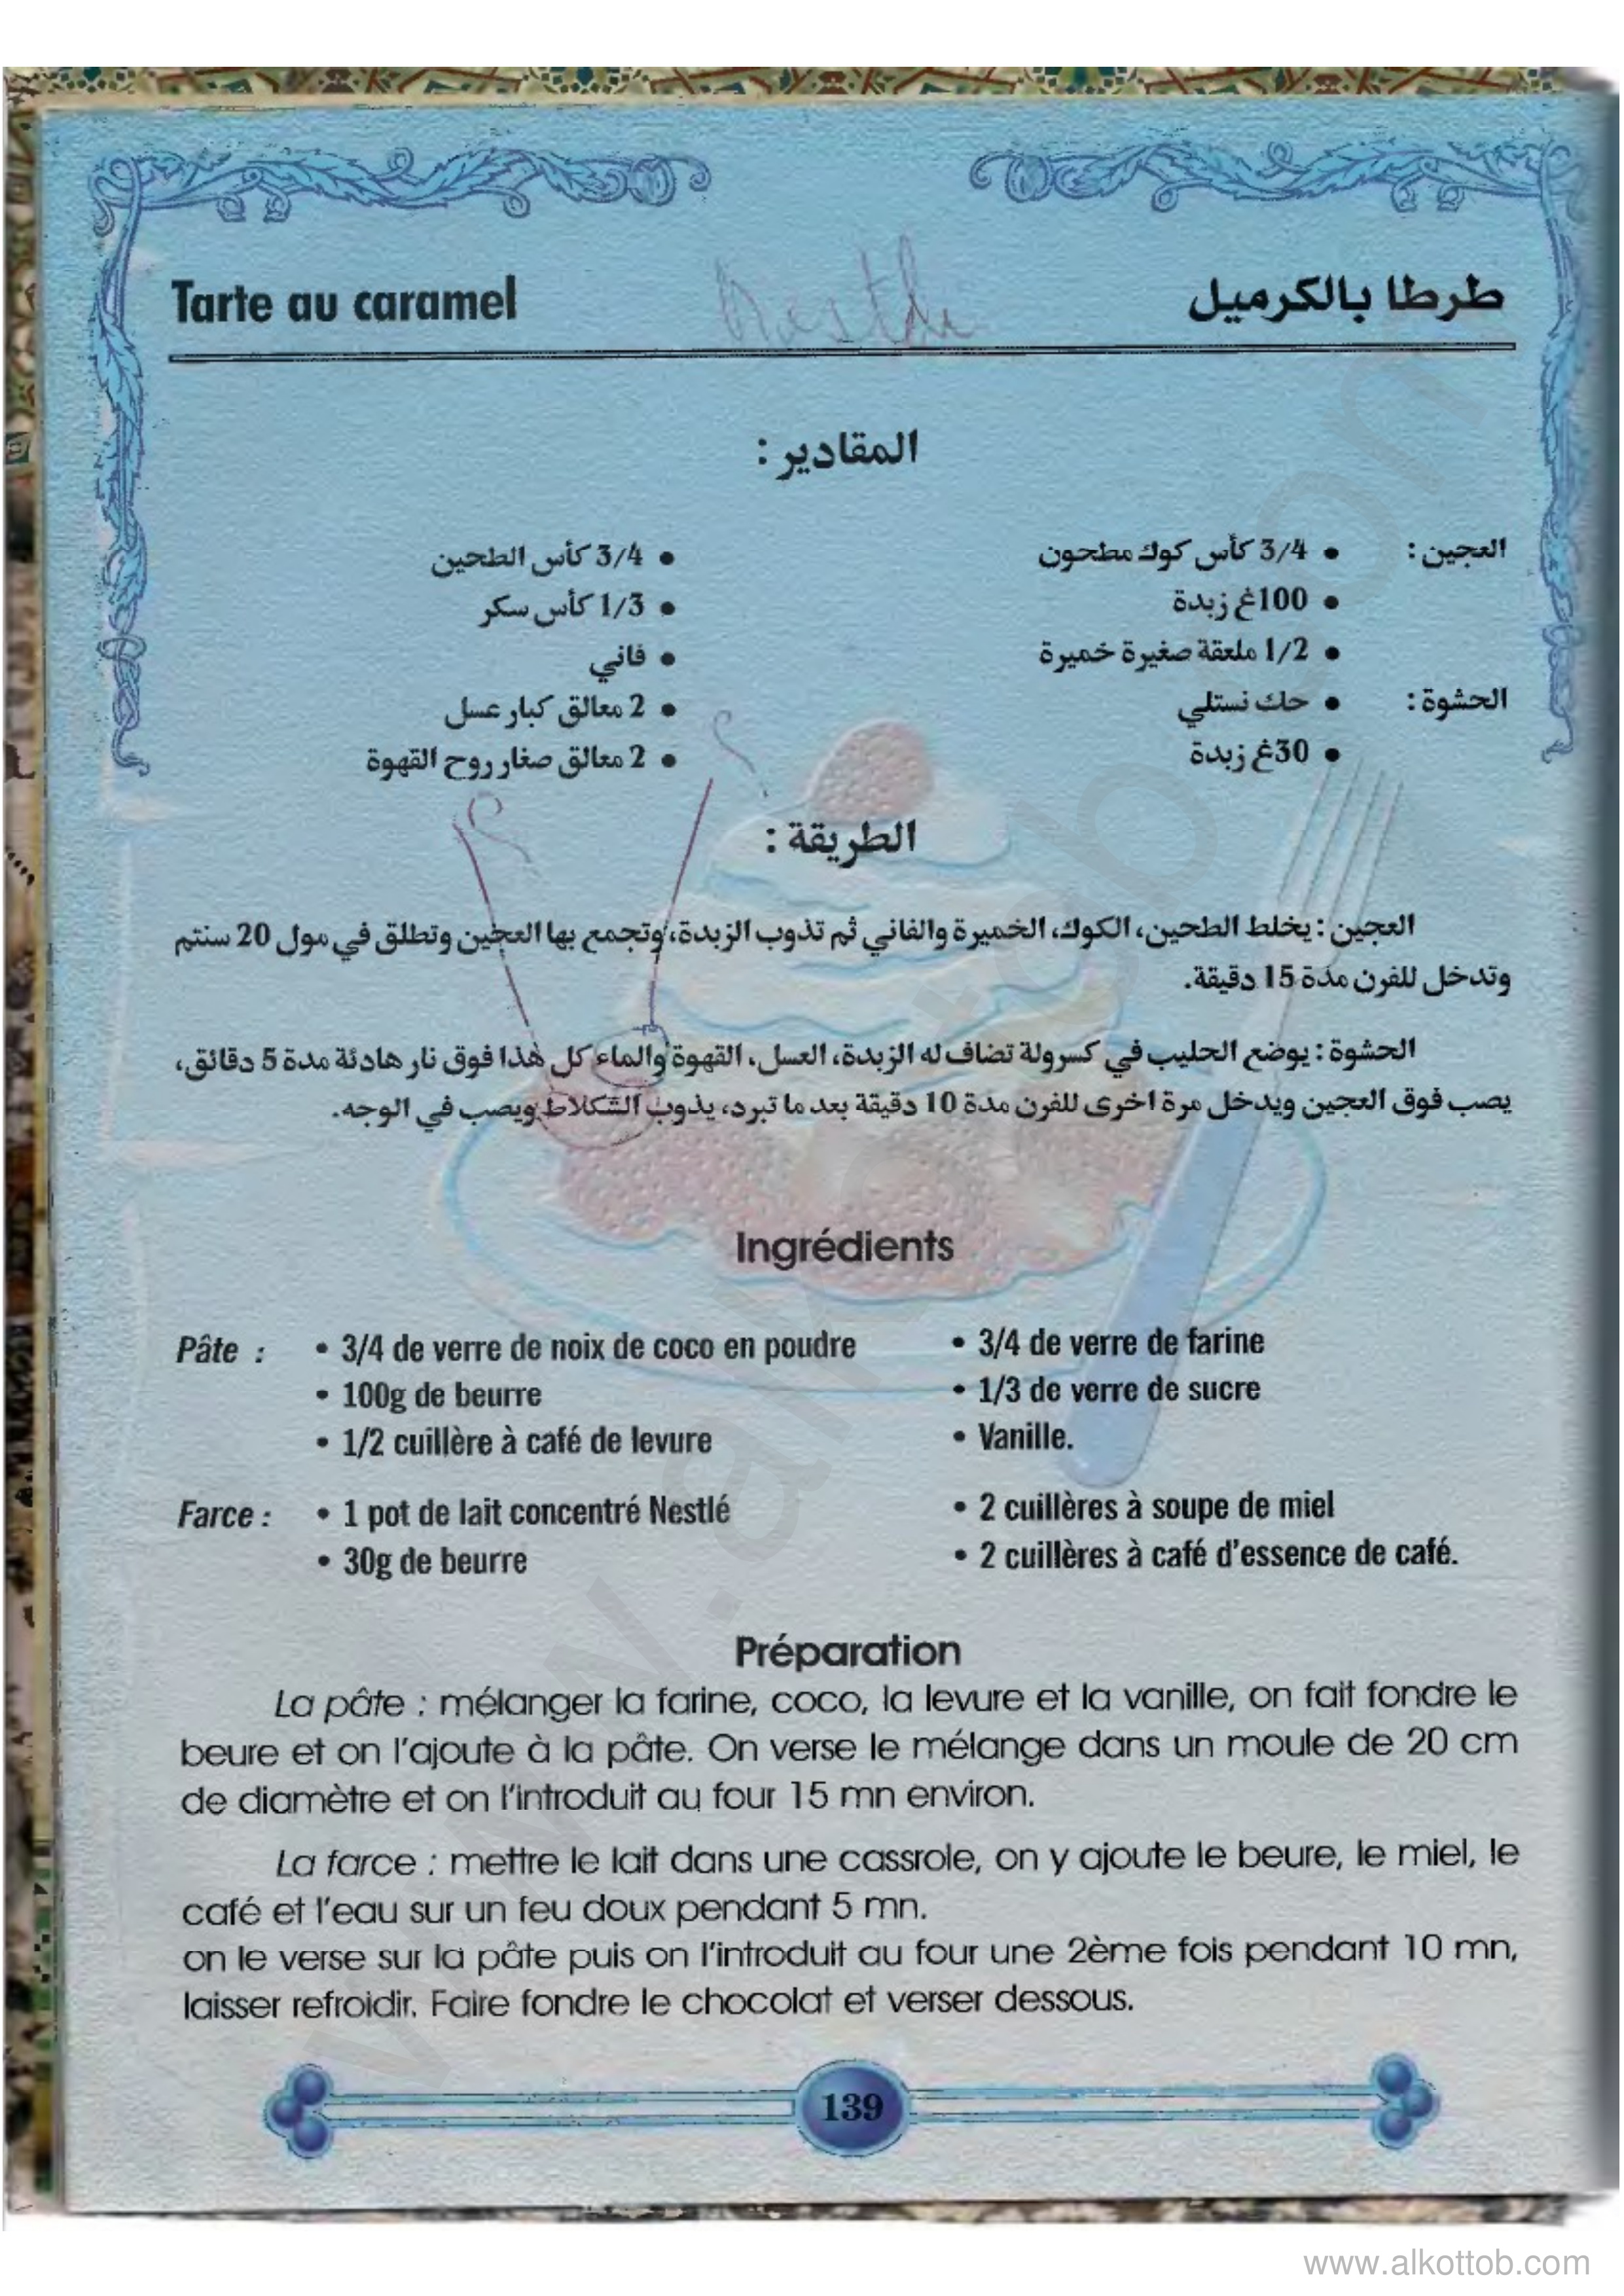 Tarte au caramel
Nestle
طرطا بالكرميل
المقادير :
العجين : • 3/4 كأس كوك مطحون • 3/4 كأس الطحين
• 100غ زبدة • 1/3 كأس سكر
• 1/2 ملعقة صغيرة خميرة • فاني
الحشوة : • حك نستلي • 2 معالق كبار عسل
• 30غ زبدة • 2 معالق صغار روح القهوة
؟
؟
الطريقة :
العجين : يخلط الطحين، الكوك، الخميرة والفاني ثم تذوب الزبدة، وتجمع بها العجين وتطلق في مول 20 سنتم
وتدخل للفرن مدة 15 دقيقة.
الحشوة : يوضع الحليب في كسرولة تضاف له الزبدة، العسل، القهوة والماء كل هذا فوق نار هادئة مدة 5 دقائق،
يصب فوق العجين ويدخل مرة اخرى للفرن مدة 10 دقيقة بعد ما تبرد، يذوب الشكلاط ويصب في الوجه.
Ingrédients
Pâte : • 3/4 de verre de noix de coco en poudre • 3/4 de verre de farine
• 100g de beurre • 1/3 de verre de sucre
• 1/2 cuillère à café de levure • Vanille.
Farce : • 1 pot de lait concentré Nestlé • 2 cuillères à soupe de miel
• 30g de beurre • 2 cuillères à café d'essence de café.
Préparation
La pâte : mélanger la farine, coco, la levure et la vanille, on fait fondre le
beure et on l'ajoute à la pâte. On verse le mélange dans un moule de 20 cm
de diamètre et on l'introduit au four 15 mn environ.
La farce : mettre le lait dans une cassrole, on y ajoute le beure, le miel, le
café et l'eau sur un feu doux pendant 5 mn.
on le verse sur la pâte puis on l'introduit au four une 2ème fois pendant 10 mn,
laisser refroidir. Faire fondre le chocolat et verser dessous.
139
www.alkottob.com